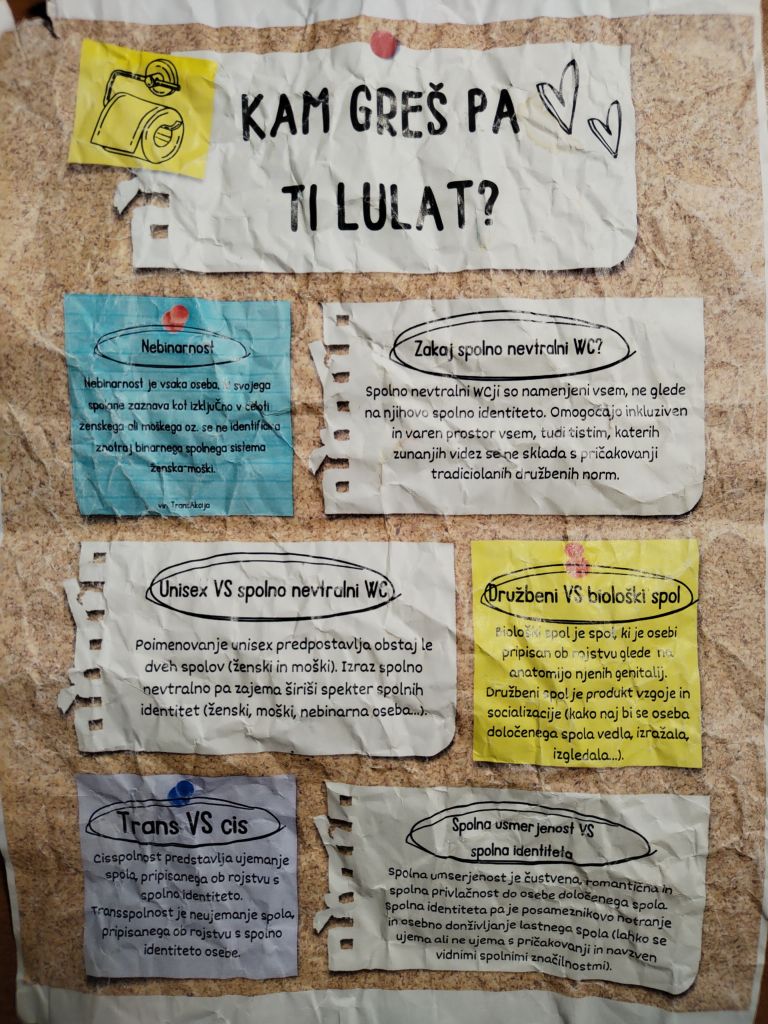 KAM GREŠ PA
TI LULAT?
Nebinarnost
Nebinarnost je vsaka oseba, svojega
spola ne zaznava kot izključno v celoti
ženskega ali moškega oz. se ne identificira
znotraj binarnega spolnega sistema
ženska-moški.
vir: TransAkcija
Zakaj spolno nevtralni WC?
Spolno nevtralni WCji so namenjeni vsem, ne glede
na njihovo spolno identiteto. Omogočajo inkluziven
in varen prostor vsem, tudi tistim, katerih
zunanjih videz se ne sklada s pričakovanji
tradiciolanih družbenih norm.
Unisex VS spolno nevtralni WC
Poimenovanje unisex predpostavlja obstaj le
dveh spolov (ženski in moški). Izraz spolno
nevtralno pa zajema širiši spekter spolnih
identitet (ženski, moški, nebinarna oseba...).
Družbeni VS biološki spol
Biološki spol je spol, ki je osebi
pripisan ob rojstvu glede na
anatomijo njenih genitalij.
Družbeni spol je produkt vzgoje in
socializacije (kako naj bi se oseba
določenega spola vedla, izražala,
izgledala...).
Trans VS cis
Cisspolnost predstavlja ujemanje
spola, pripisanega ob rojstvu s
spolno identiteto.
Transspolnost je neujemanje spola,
pripisanega ob rojstvu s spolno
identiteto osebe.
Spolna usmerjenost VS
spolna identiteta
Spolna umserjenost je čustvena, romantična in
spolna privlačnost do osebe določenega spola.
Spolna identiteta pa je posameznikovo notranje
in osebno donživljanje lastnega spola (lahko se
ujema ali ne ujema s pričakovanji in navzven
vidnimi spolnimi značilnostmi).